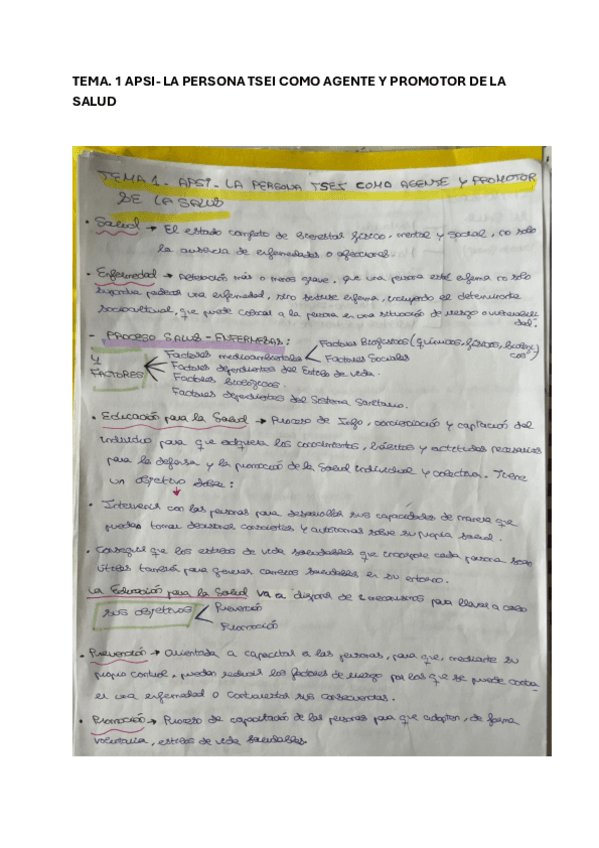 TEMA. 1 APSI- LA PERSONA TSEI COMO AGENTE Y PROMOTOR DE LA
SALUD
TEMA 1 - APSI - LA PERSONA TSEI COMO AGENTE Y PROMOTOR
DE LA SALUD
• Salud → El estado completo de bienestar físico, mental y social, no solo
la ausencia de enfermedades o afecciones.
• Enfermedad → Alteración más o menos grave. Que una persona esté enferma no solo
padecer una enfermedad, sino sentirse enferma, incluyendo el determinante
sociocultural, que puede colocar a la persona en una situación de riesgo o vulnerabili
dad.
- PROCESO SALUD - ENFERMEDAD:
Factores Biogénicos (químicos, físicos, biológi
cos)
Y
FACTORES
Factores medioambientales
Factores Sociales
Factores dependientes del Estilo de vida.
Factores Biológicos.
Factores dependientes del Sistema Sanitario.
• Educación para la Salud → Proceso de Info, concienciación y captación del
individuo para que adquiera los conocimientos, hábitos y actitudes necesarias
para la defensa y la promoción de la Salud individual y colectiva. Tiene
un objetivo doble:
• Intervenir con las personas para desarrollar sus capacidades de manera que
puedan tomar decisiones conscientes y autónomas sobre su propia salud.
• Conseguir que los estilos de vida saludables que incorpore cada persona sean
útiles también para generar cambios saludables en su entorno.
La Educación para la Salud va a disponer de 2 mecanismos para llevar a cabo
sus objetivos
Prevención
Promoción
• Prevención → Orientada a capacitar a las personas, para que, mediante su
propio control, puedan reducir los factores de riesgo por los que se puede
en una enfermedad o contrarrestar sus consecuencias.
• Promoción → Proceso de capacitación de las personas para que adopten, de forma
voluntaria, estilos de vida saludables.